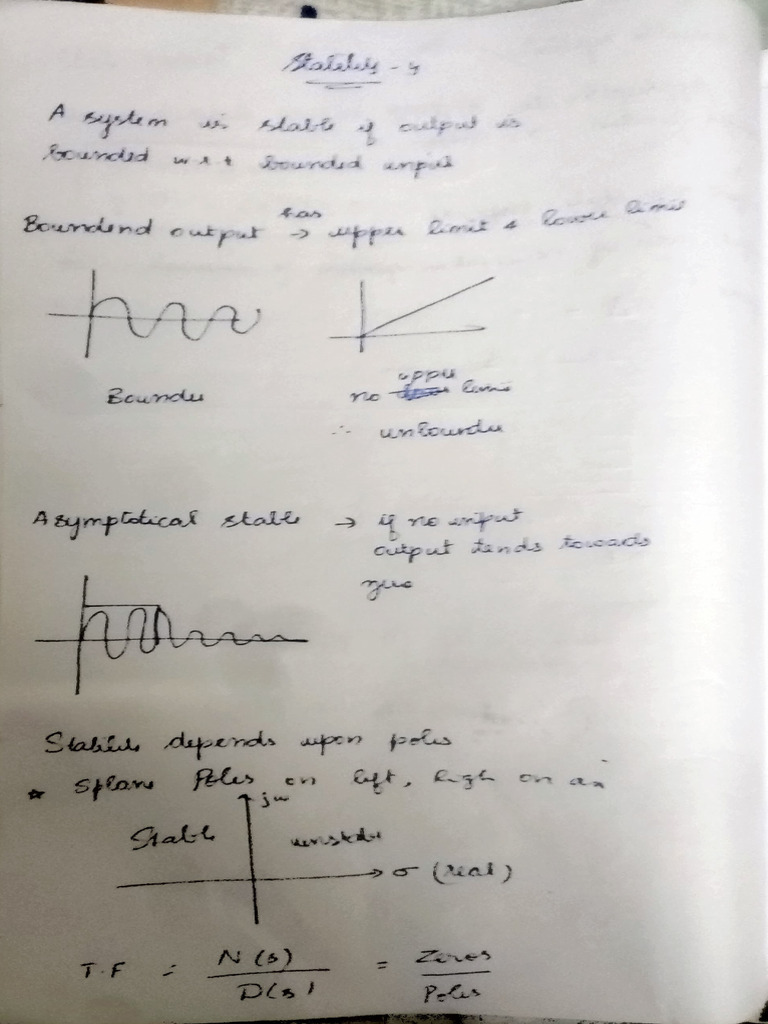 Stability - 4
A system is stable if output is
bounded w r t bounded input
Boundend output has → upper limit & lower limit
Bounded
no upper limit
∴ unbounded
Asymptotical stable → if no input
output tends towards
zero
Stability depends upon poles
* S plane Poles on left, right on
jw
Stable unstable
σ (real)
T.F = N(s) / D(s) = Zeros / Poles